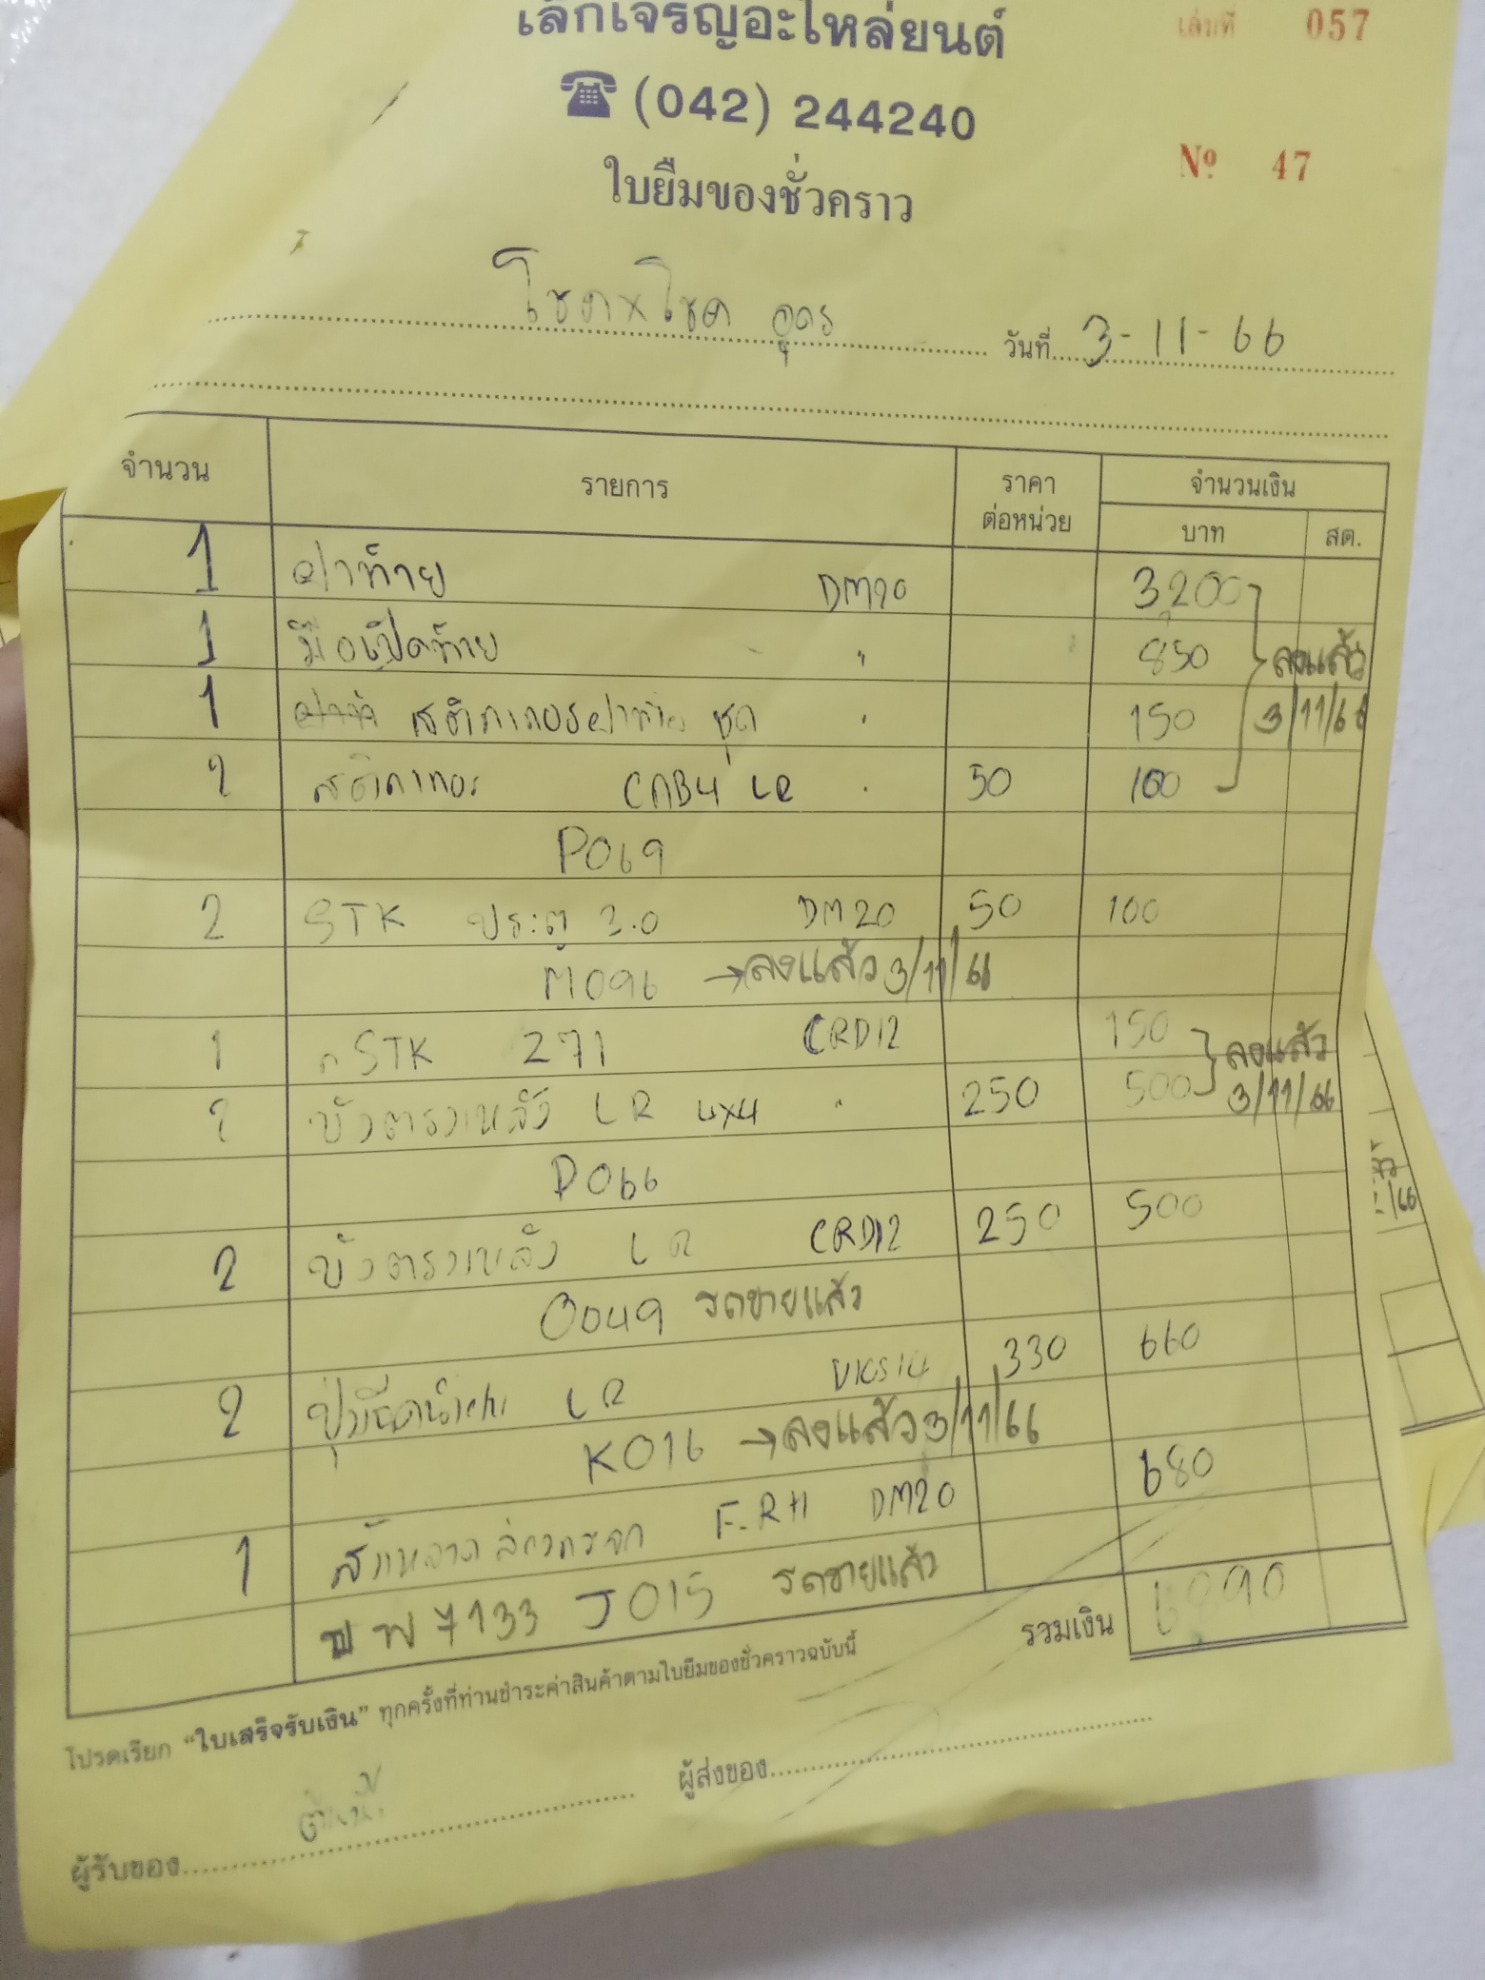 เล็กเจริญอะไหล่ยนต์
เล่มที่ 057
☎ (042) 244240
Nº 47
ใบยืมของชั่วคราว
โชคxโชค อุดร วันที่ 3-11-66
จำนวน รายการ ราคาต่อหน่วย จำนวนเงิน
บาท สต.
1 ฝาท้าย DM20 3,200
1 มือเปิดท้าย " 850 ลงแล้ว
1 สติกเกอร์ฝาท้าย ชุด " 150 3/11/66
2 สติกเกอร์ CAB4 LR " 50 100
P069
2 STK ประตู 3.0 DM20 50 100
M096 →ลงแล้ว 3/11/66
1 STK 271 CRD12 150 ลงแล้ว
2 บังตรงหลัง LR 4x4 " 250 500 3/11/66
P066
2 บังตรงหลัง LR CRD12 250 500
O049 รถขายแล้ว
2 LR VKS14 330 660
K016 →ลงแล้ว 3/11/66
1 F-RH DM20 680
7133 J015 รถขายแล้ว
รวมเงิน 6,890
โปรดเรียก “ใบเสร็จรับเงิน” ทุกครั้งที่ท่านชำระค่าสินค้าตามใบยืมของชั่วคราวฉบับนี้
ผู้รับของ ผู้ส่งของ